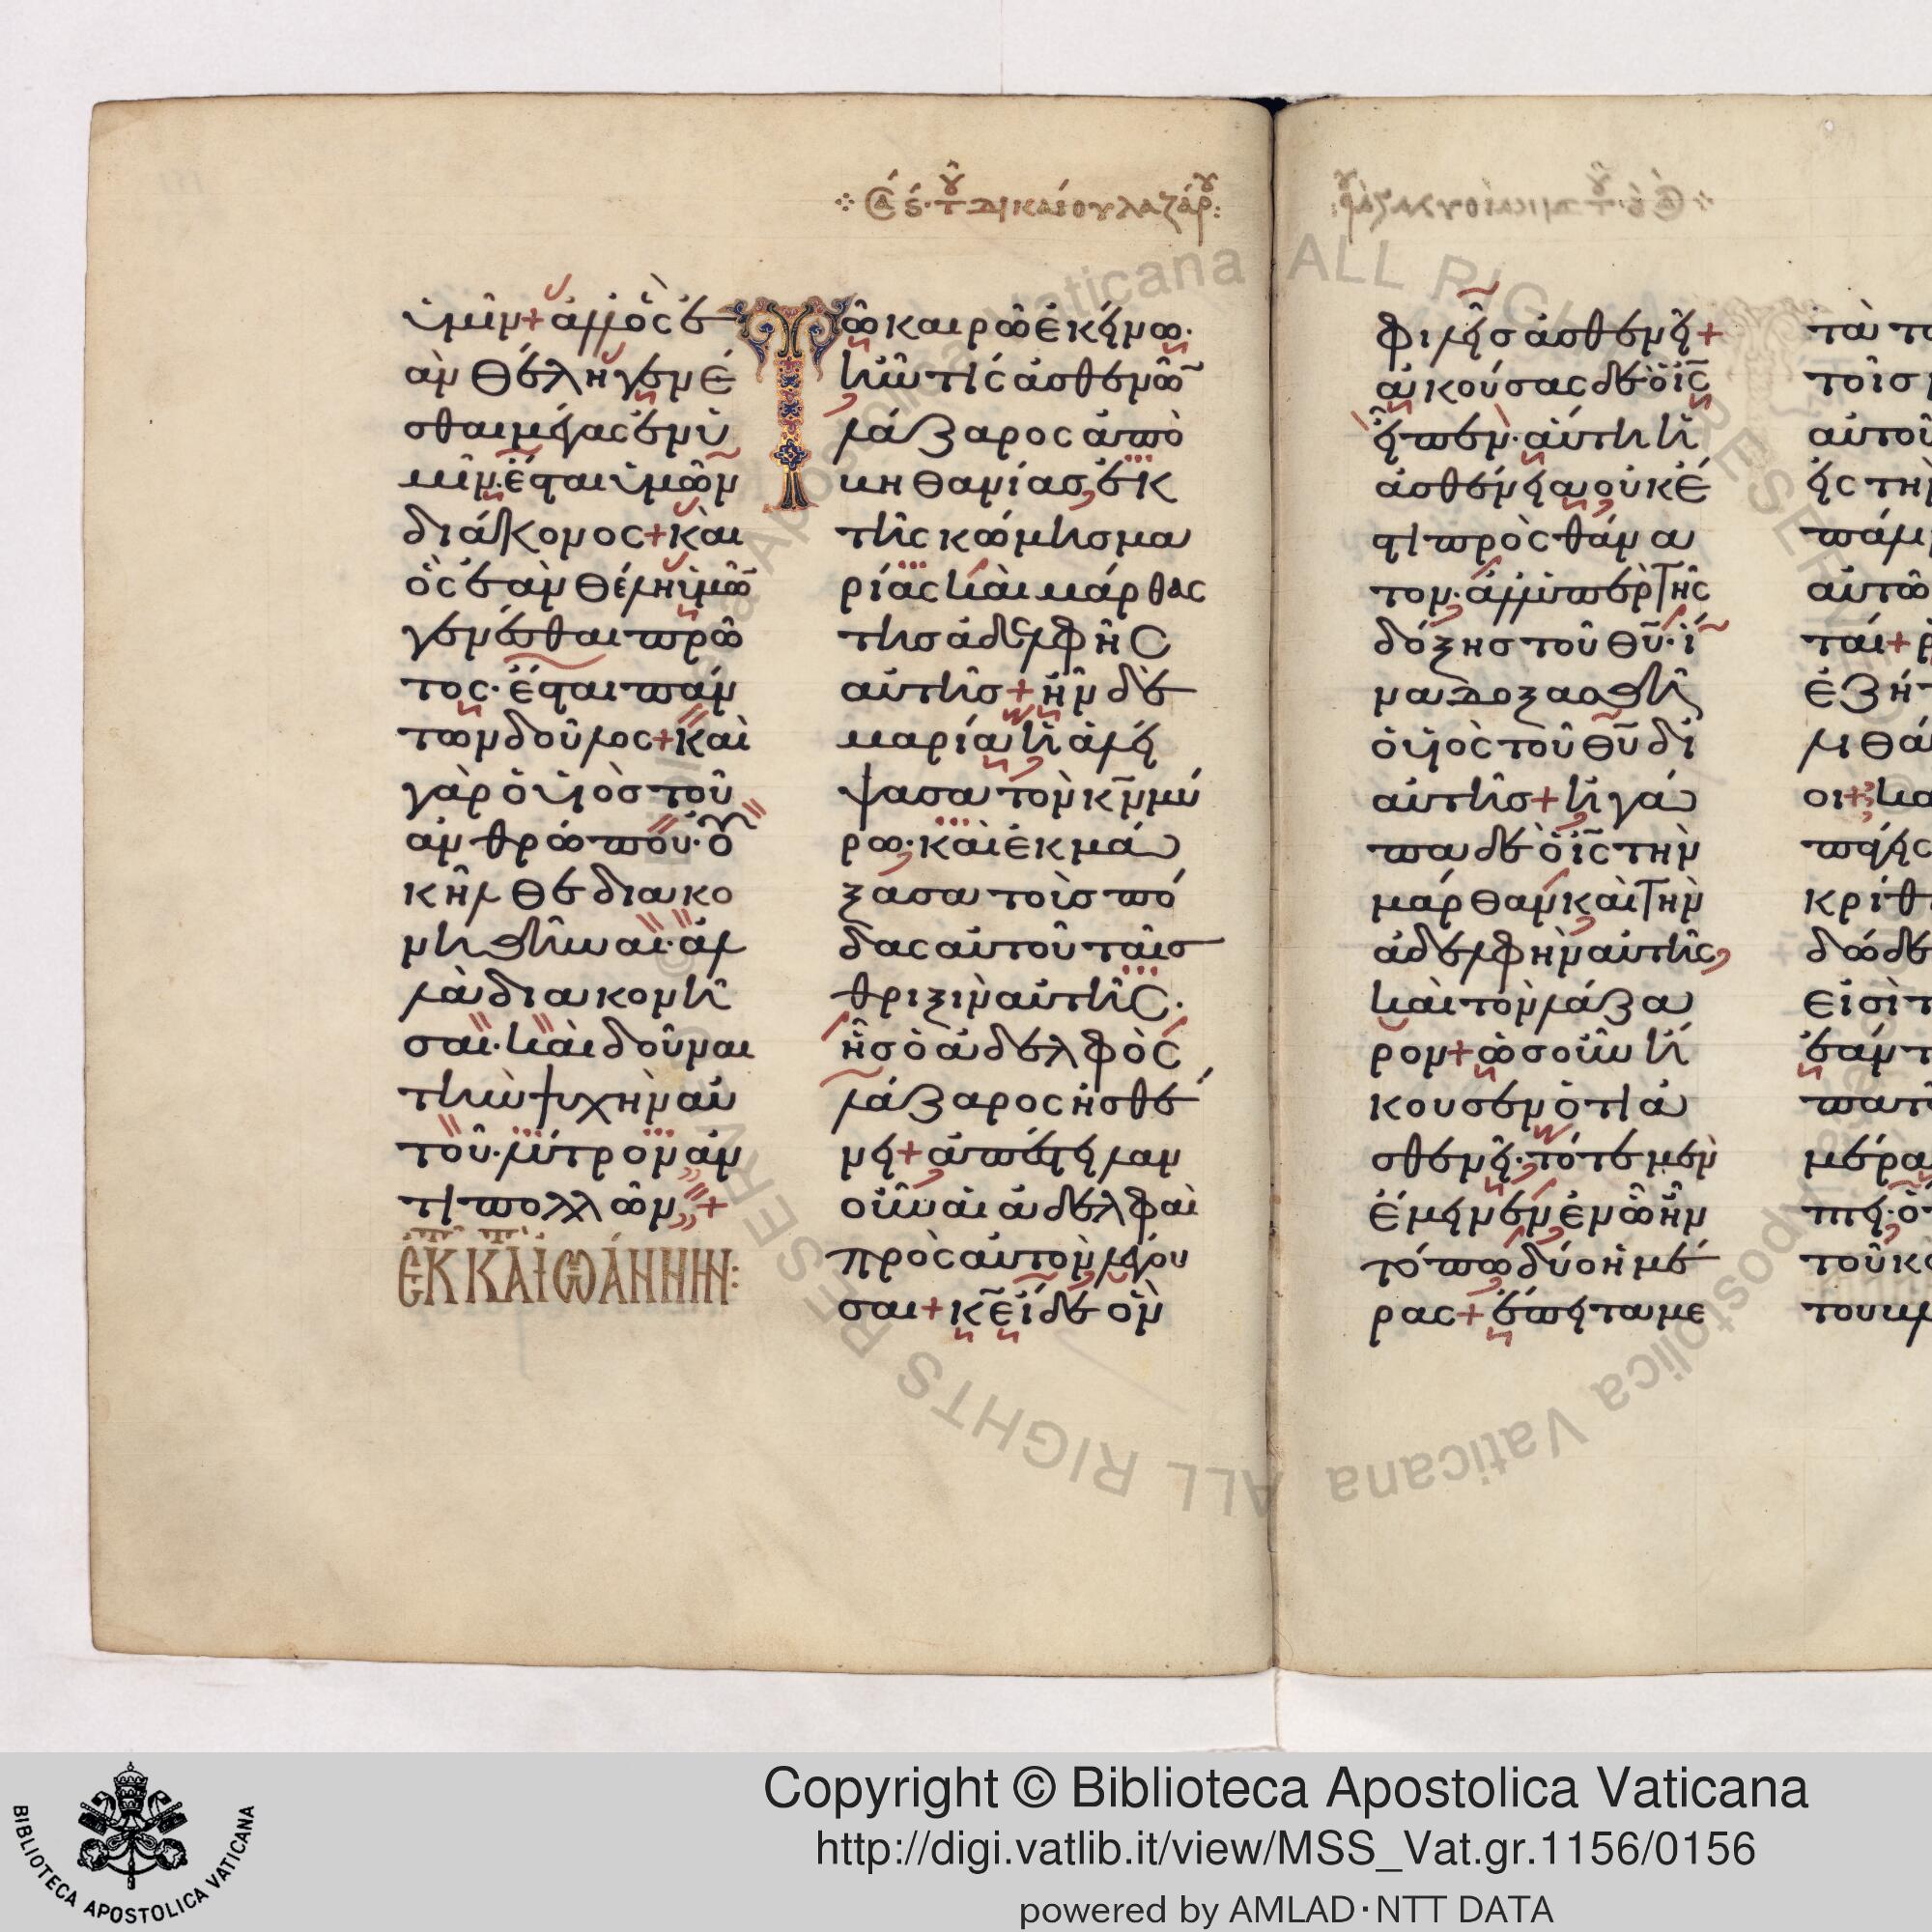 Σα ς τοῦ δικαίου λαζάρου:
ὑμῖν + ἀλλ' ὃς ἐ
ὰν θέλῃ γενέ
σθαι μέγας ἐν ὑ
μῖν· ἔσται ὑμῶν
διάκονος + καὶ
ὃς ἐὰν θέλῃ ὑμῶν
γενέσθαι πρῶ
τος· ἔσται πάν
των δοῦλος + καὶ
γὰρ ὁ υἱὸς τοῦ
ἀνθρώπου· οὐ
κ ἦλθε διακο
νηθῆναι· ἀλ
λὰ διακονῆ
σαι· καὶ δοῦναι
τὴν ψυχὴν αὐ
τοῦ· λύτρον ἀν
τὶ πολλῶν +
ἐκ κατ ἰωάννην:
Τῶ καιρῶ ἐκείνω·
ἦν τίς ἀσθενῶν
λάζαρος ἀπὸ
βηθανίας, ἐκ
τῆς κώμης μα
ρίας καὶ μάρθας
τῆς ἀδελφῆς
αὐτῆς + ἦν δὲ
μαρία ἡ ἀλεί
ψασα τὸν κν μύ
ρω· καὶ ἐκμά
ξασα τοὺς πό
δας αὐτοῦ ταῖς
θριξὶν αὐτῆς·
ἧς ὁ ἀδελφὸς
λάζαρος ἠσθέ
νει + ἀπέστειλαν
οὖν αἱ ἀδελφαὶ
πρὸς αὐτὸν λέγου
σαι + κε ἴδε ὃν
φιλεῖς ἀσθενεῖ +
ἀκούσας δὲ ὁ ις
εἶπεν· αὕτη ἡ
ἀσθένεια οὐκ ἔ
στι πρὸς θάνα
τον· ἀλλ' ὑπὲρ τῆς
δόξης τοῦ θυ· ἵ
να δοξασθῆ
ὁ υἱὸς τοῦ θυ δι'
αὐτῆς + ἠγά
πα δὲ ὁ ις τὴν
μάρθαν καὶ τὴν
ἀδελφὴν αὐτῆς,
καὶ τὸν λάζα
ρον + ὡς οὖν ἤ
κουσεν ὅτι ἀ
σθενεῖ· τότε μὲν
ἔμεινεν ἐν ὧ ἦν
τόπω δύο ἡμέ
ρας + ἔπειτα με
Copyright © Biblioteca Apostolica Vaticana
http://digi.vatlib.it/view/MSS_Vat.gr.1156/0156
powered by AMLAD·NTT DATA
BIBLIOTECA APOSTOLICA VATICANA